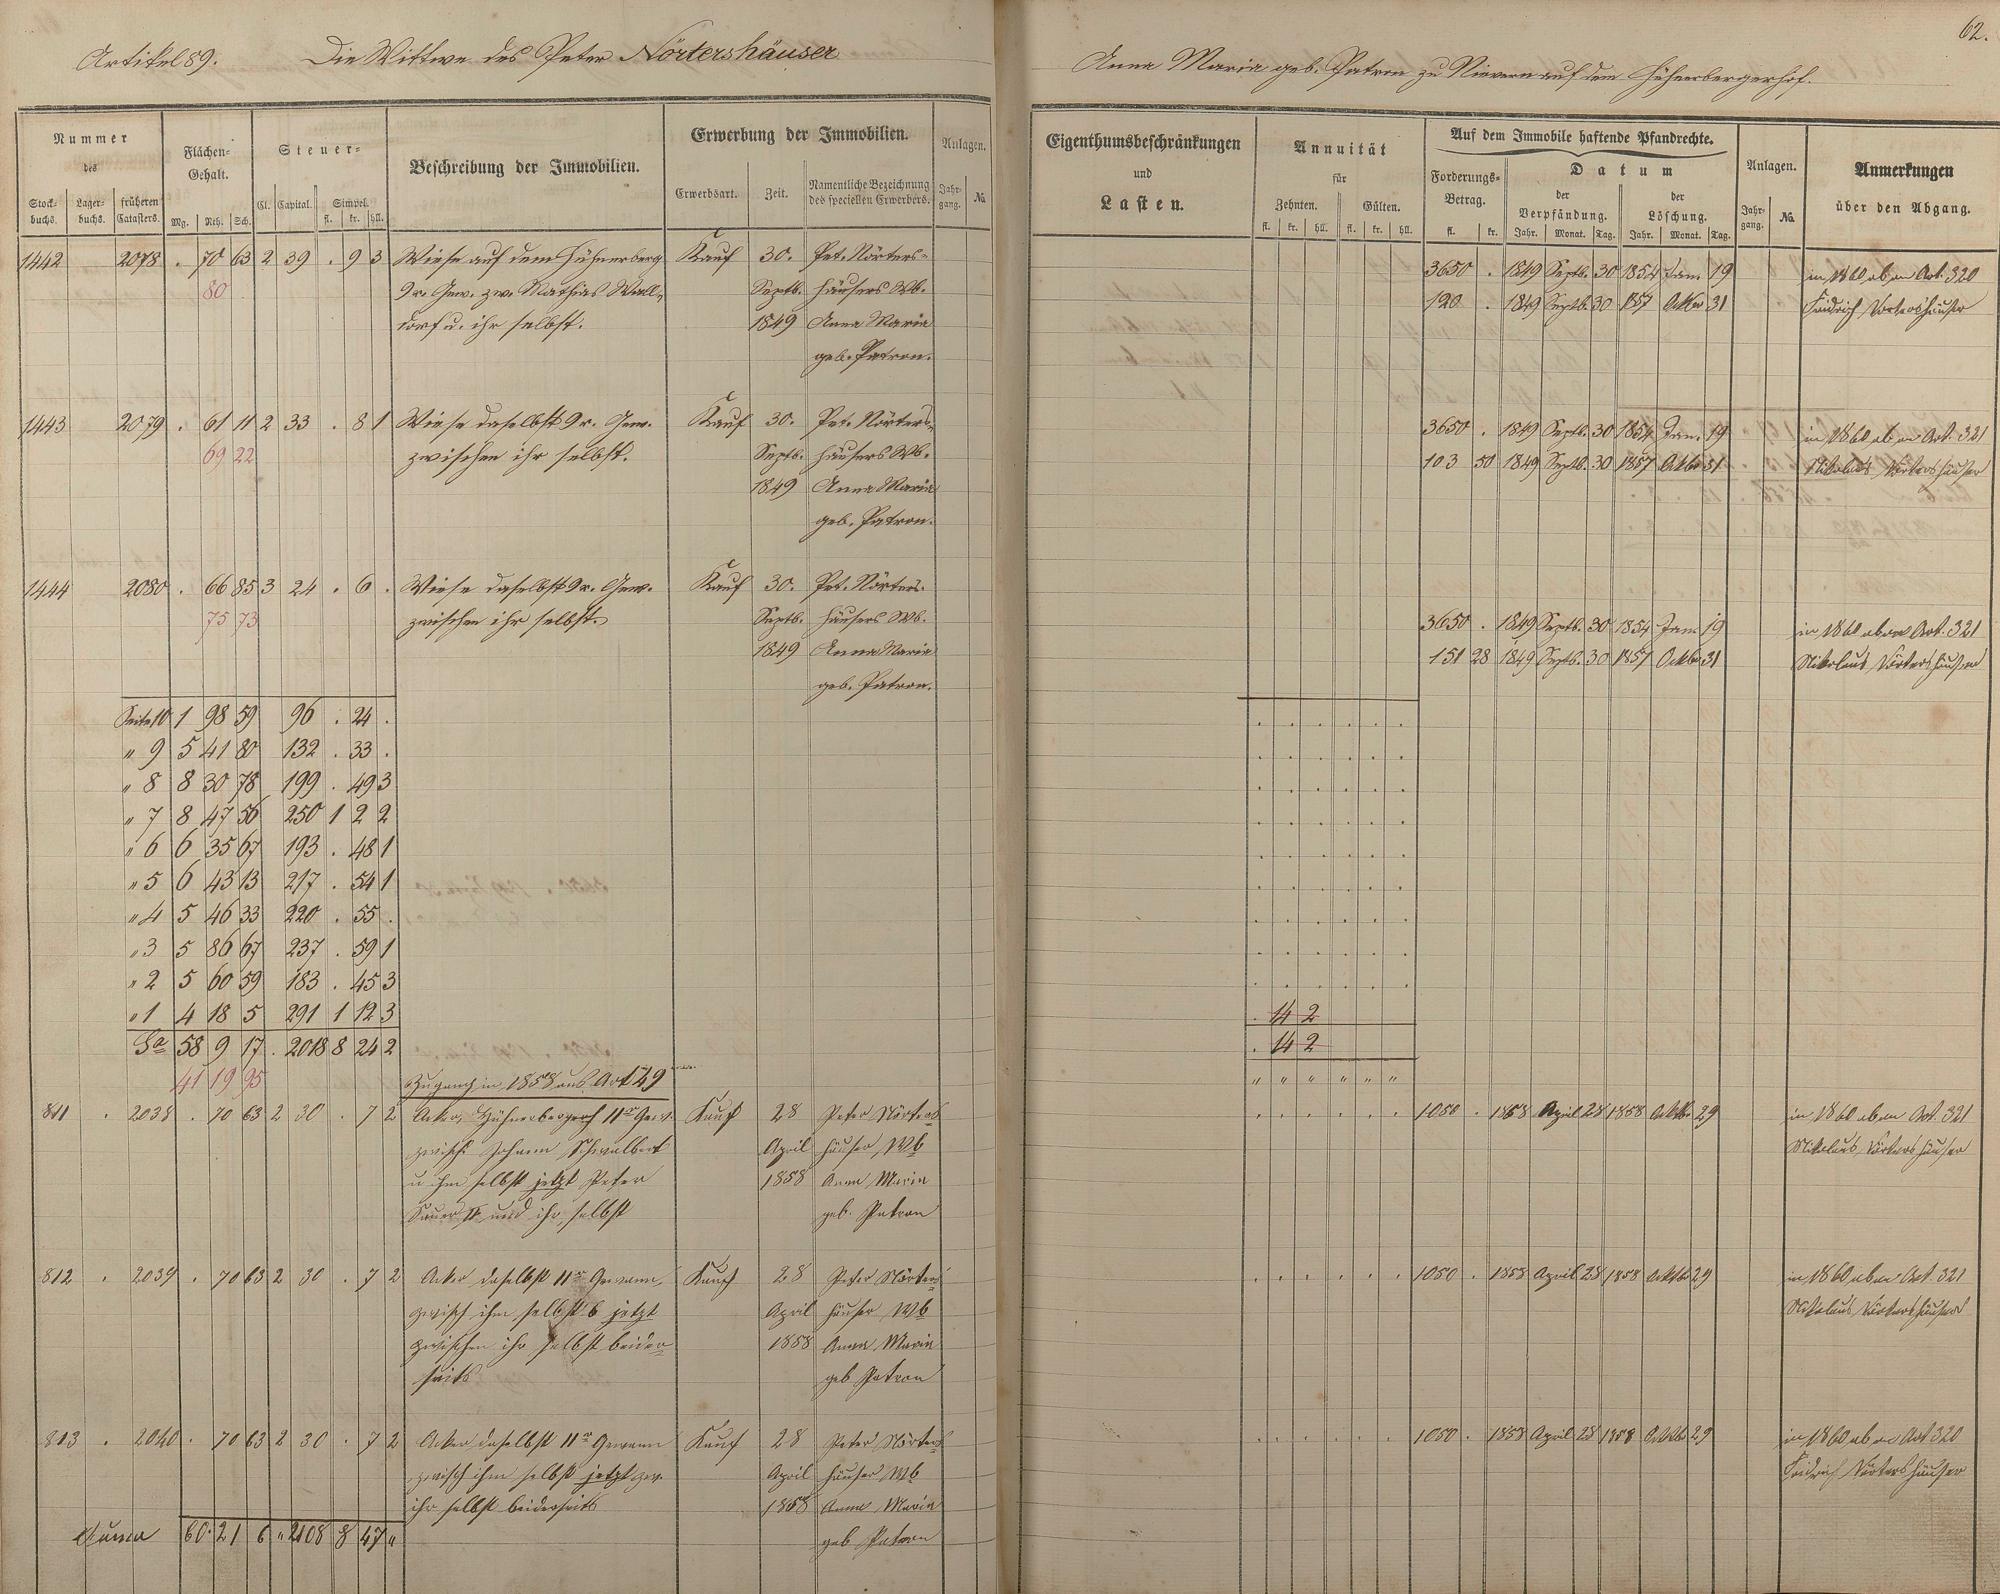 62.
Artikel 89. Die Wittwe des Peter Nörtershäuser
Anna Maria geb. Patron zu Nievern auf dem Hühnerbergerhof.
Nummer des
Stockbuchs. Lagerbuchs. früheren Catasters.
Flächen-Gehalt.
Mg. Rth. Sch.
Steuer-
Cl. Capital. Simpel. fl. kr. hll.
Beschreibung der Immobilien.
Erwerbung der Immobilien.
Erwerbsart. Zeit. Namentliche Bezeichnung des speciellen Erwerbers.
Anlagen.
Jahrgang. No.
Eigenthumsbeschränkungen
und
Lasten.
Annuität
für
Zehnten. Gülten.
fl. kr. hll. fl. kr. hll.
Auf dem Immobile haftende Pfandrechte.
Forderungs-Betrag.
fl. kr.
Datum
der Verpfändung. der Löschung.
Jahr. Monat. Tag. Jahr. Monat. Tag.
Anlagen.
Jahrgang. No.
Anmerkungen
über den Abgang.
1442 2078 . 70 63 2 39 . 9 3 Wiese auf dem Hühnerberg Kauf 30. Pet. Nörters-
80 9r. Gew. zw. Mathias Wall- Septb. häusers Wb.
dorf u. ihr selbst. 1849 Anna Maria
geb. Patron.
3650 . 1849 Septb. 30 1854 Jan. 19 in 1860 ab an Art. 320
120 . 1849 Septb. 30 1857 Oktbr 31 Friedrich Nörtershäuser
1443 2079 . 61 11 2 33 . 8 1 Wiese daselbst 9r. Gew. Kauf 30. Pet. Nörters-
69 22 zwischen ihr selbst. Septb. häusers Wb.
1849 Anna Maria
geb. Patron.
3650 . 1849 Septb. 30 1854 Jan. 19 in 1860 ab an Art. 321
103 50 1849 Septb. 30 1857 Oktbr 31 Nikolaus Nörtershäuser
1444 2080 . 66 85 3 24 . 6 . Wiese daselbst 9r. Gew. Kauf 30. Pet. Nörters-
75 73 zwischen ihr selbst. Septb. häusers Wb.
1849 Anna Maria
geb. Patron.
3650 . 1849 Septb. 30 1854 Jan. 19 in 1860 ab an Art. 321
151 28 1849 Septb. 30 1857 Oktbr 31 Nikolaus Nörtershäuser
Seite 10 1 98 59 96 . 24 .
" 9 5 41 80 132 . 33 .
" 8 8 30 78 199 . 49 3
" 7 8 47 56 250 1 2 2
" 6 6 35 67 193 . 48 1
" 5 6 43 13 217 . 54 1
" 4 5 46 33 220 . 55 .
" 3 5 86 67 237 . 59 1
" 2 5 60 59 183 . 45 3
" 1 4 18 5 291 1 12 3 . 14 2
Sa 58 9 17 . 2018 8 24 2 . 14 2
41 19 95 Zugang in 1858 aus Art 49 " " " " " "
811 . 2038 . 70 63 2 30 . 7 2 Acker, Hühnerbergerhof 11r Gew. Kauf 28 Peter Nörters
zwisch Johann Schwalbert April häuser Wb
u ihm selbst jetzt Peter 1858 Anna Maria
Sauer II und ihr selbst geb. Patron
1050 . 1858 April 28 1858 Oktbr 29 in 1860 ab an Art. 321
Nikolaus Nörtershäuser
812 . 2039 . 70 63 2 30 . 7 2 Acker daselbst 11r Gewann, Kauf 28 Peter Nörters
zwisch ihm selbst b jetzt April häuser Wb
zwischen ihr selbst beider- 1858 Anna Maria
seits geb Patron
1050 . 1858 April 28 1858 Oktbr 29 in 1860 ab an Art. 321
Nikolaus Nörtershäuser
813 . 2040 . 70 63 2 30 . 7 2 Acker daselbst 11r Gewann Kauf 28 Peter Nörters
zwisch ihm selbst jetzt zw. April häuser Wb
ihr selbst beiderseits 1858 Anna Maria
geb Patron
1050 . 1858 April 28 1858 Oktbr 29 in 1860 ab an Art 320
Friedrich Nörtershäuser
Suma 60 21 6 " 2108 8 47 "